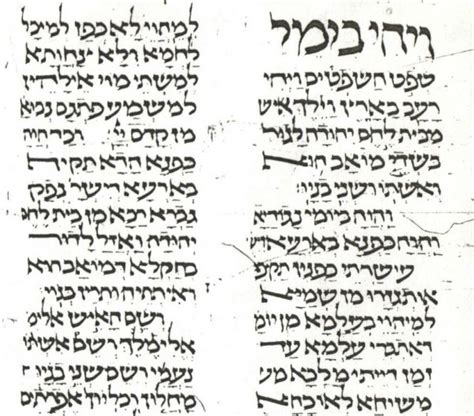 ויהי בימי
שפט השפטים ויהי
רעב בארץ וילך איש
מבית לחם יהודה לגור
בשדי מואב הוא
ואשתו ושני בניו
והוה ביומי נגודיא
והוה כפנא בארעא
עישרתי כפנין תקפ
איתגזרו מן שמיא
למיהוי בעלמא מן יומ
דאתברי עלמא עד
זמן דייתי מלכא מ
משיחא לאוכחא
למהוי לא כפן למיכל
לחמא ולא צחותא
למשתי מוי אילהין
למשמע פתגם נבוא
מן קדם יי וכד הוה
כפנא הדא תקיף
בארעא דישר נפק
גברא רבא מן בית לחם
יהודה ואזל לדור
בחקלא דמואב הוא
ואיתתיה ותרין בנוי
ושם האיש אלימ
אלימלך ושם אשתו
נעמי ושם שני בניו
מחלון וכליון אפרתים